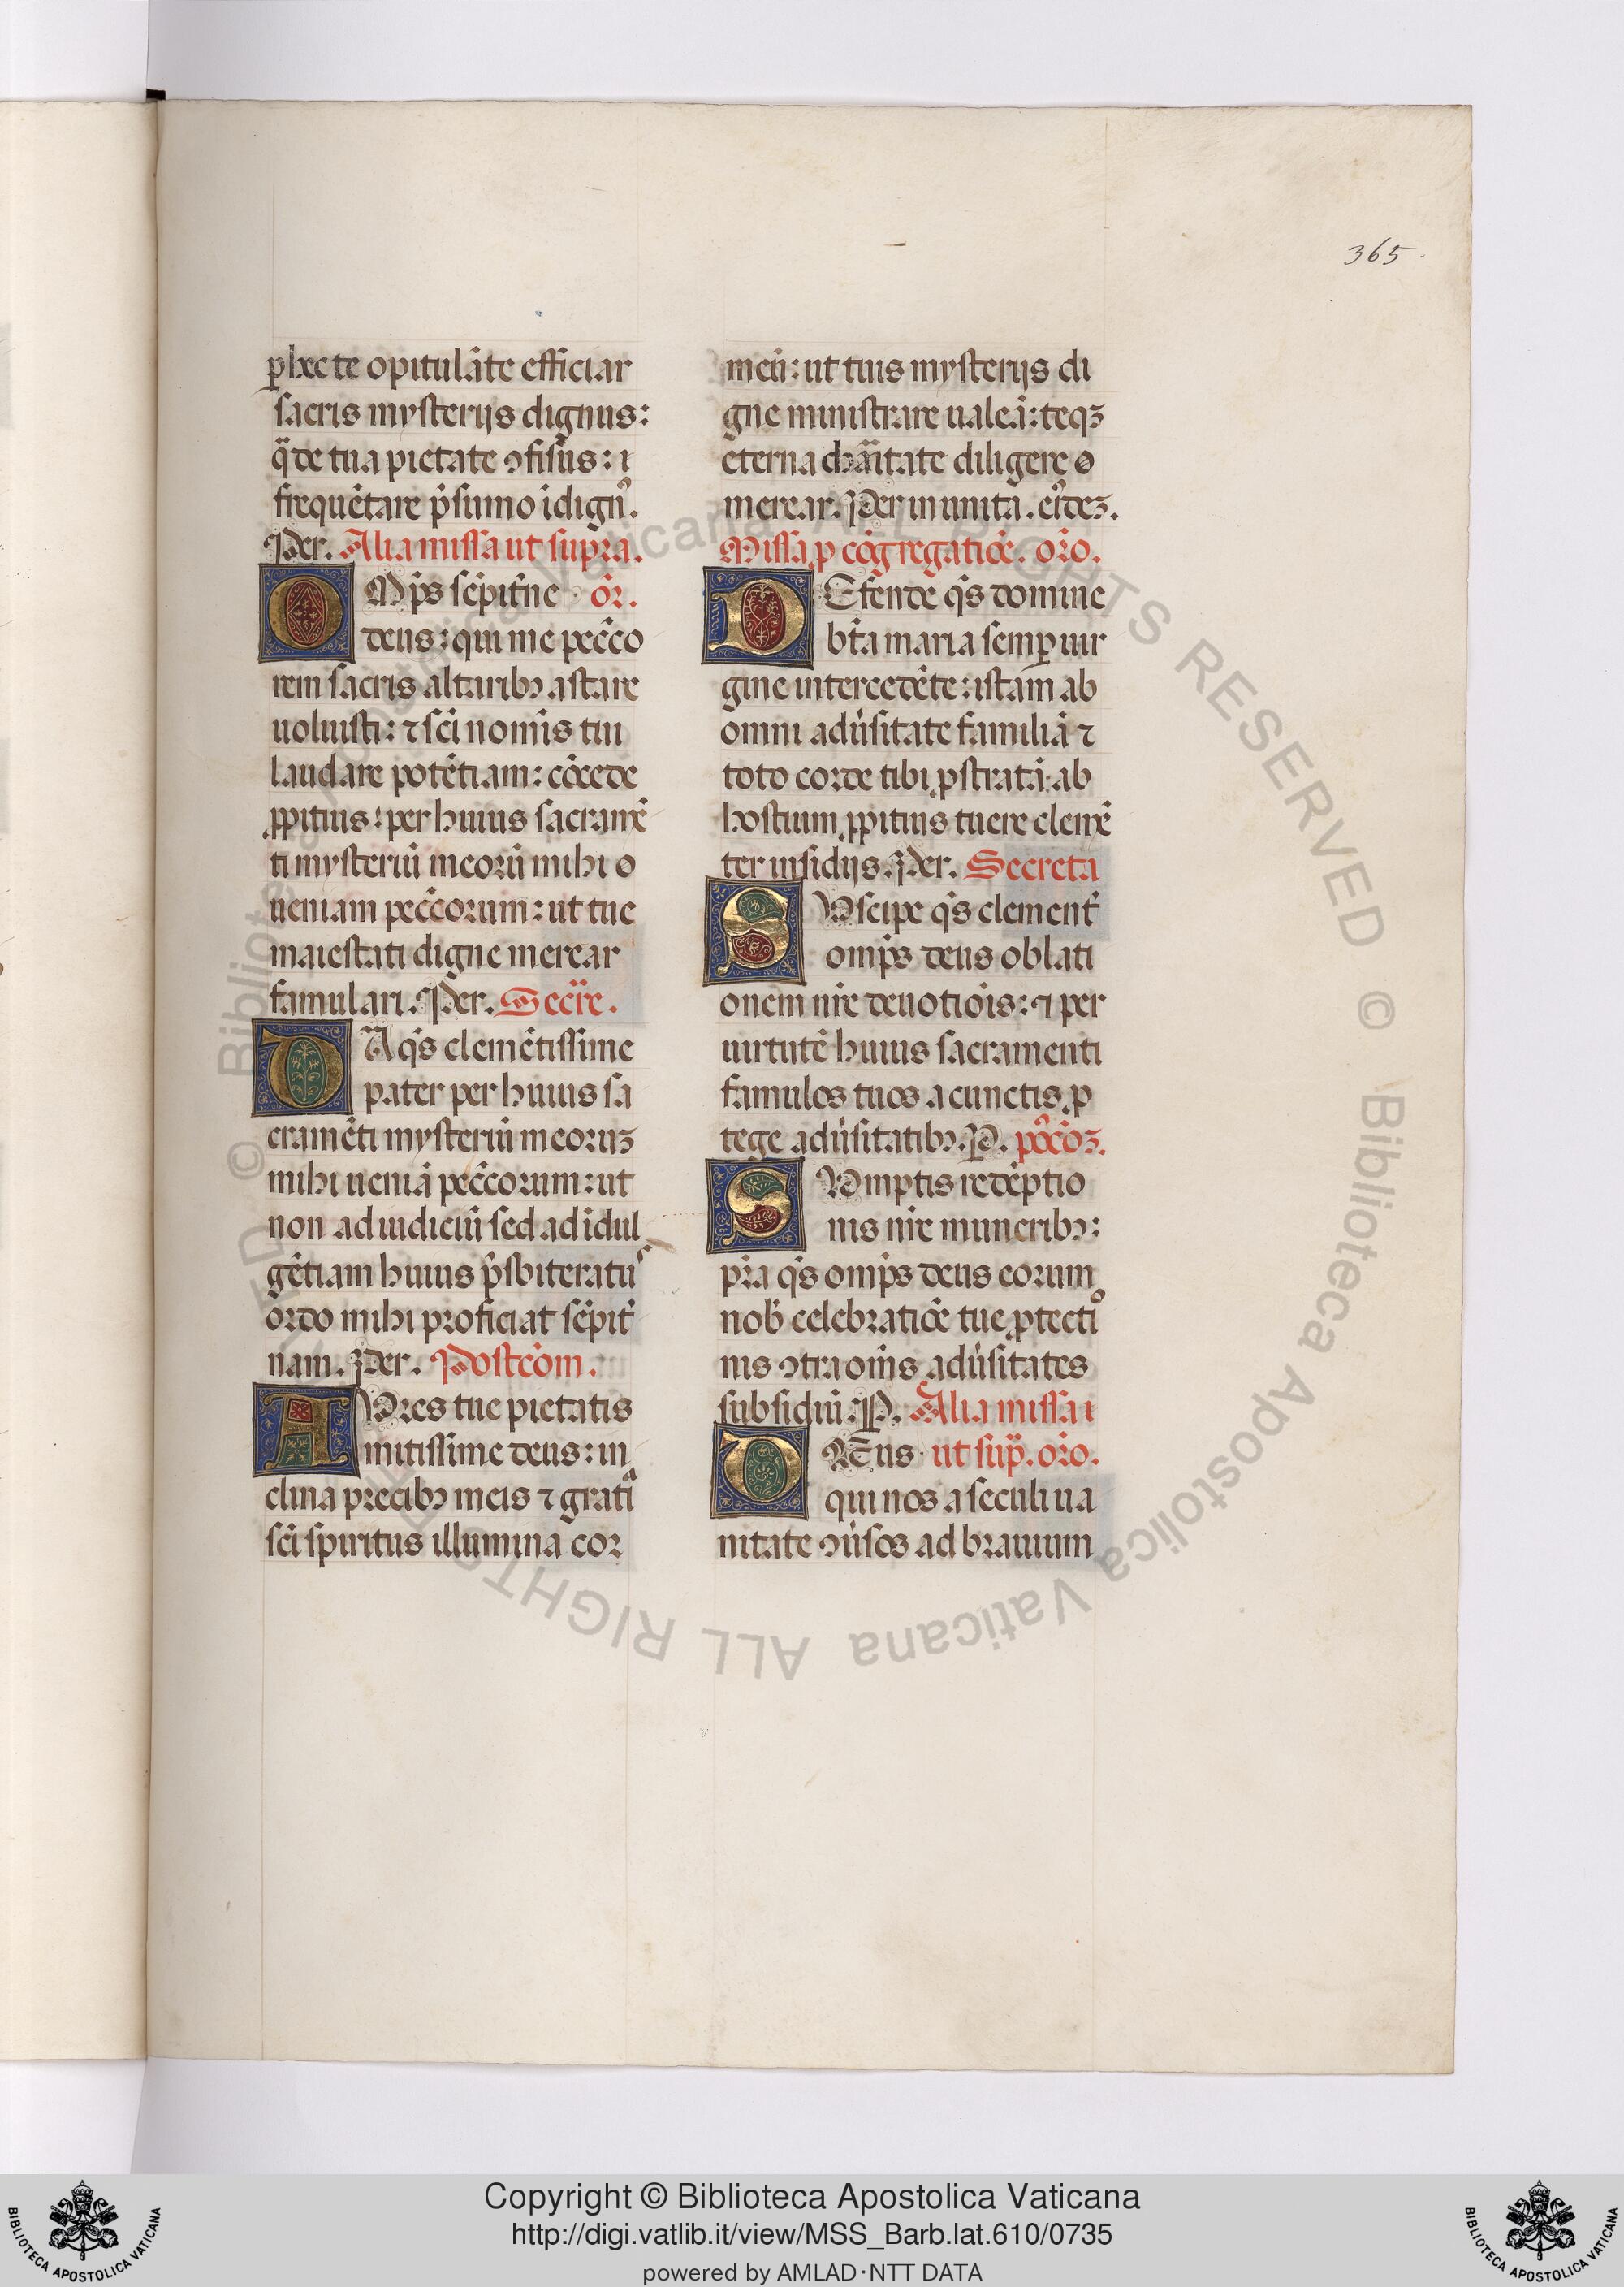 365.
ꝑ hec te opitulāte efficiar
sacris mysterijs dignus:
q̄ de tua pietate ↄfisus: ⁊
frequētare p̄sumo idignꝰ.
Per. Alia missa ut supra.
OMp̄s sēpit̄ne or̄.
deus: qui me pecc̄o
rem sacris altaribꝫ astare
uoluisti: ⁊ sc̄i nomīs tui
laudare potētiam: cōcede
ꝓpitius: per huius sacramē
ti mysteriū meorū mihi o
ueniam pecc̄orum: ut tue
maiestati digne merear
famulari. Per. Secr̄e.
DA q̄s clemētissime
pater per huius sa
cramēti mysteriū meoruꝫ
mihi ueniā pecc̄orum: ut
non ad iudiciū sed ad idul
gētiam huius p̄sbiteratus
ordo mihi proficiat sēpit̄
nam. Per. Postcōm.
AUres tue pietatis
mitissime deus: in
clina precibꝫ meis ⁊ gratia
sc̄i spiritus illumina cor
meū: ut tuis mysterijs di
gne ministrare ualeā: teqꝫ
eterna charitate diligere o
merear. Per in unita. eiꝰdeꝫ.
Missa ꝓ cōgregatiōe. or̄o.
DEfende q̄s domine
bt̄a maria semꝑ uir
gine intercedēte: istam ab
omni adūsitate familiā ⁊
toto corde tibi ꝓstratā: ab
hostium ꝓpitius tuere clemē
ter insidijs. Per. Secreta
SUscipe q̄s clement̄
omīps deus oblati
onem nr̄e deuotiōis: ⁊ per
uirtutē huius sacramenti
famulos tuos a cunctis ꝓ
tege adūsitatibꝫ. P. pꝰcōꝫ.
SUmptis redēptio
nis nr̄e muneribꝫ:
pr̄a q̄s omīps deus eorum
nob̄ celebratiōe tue ꝓtectiꝰ
nis ↄtra om̄s adūsitates
subsidiū. P. Alia missa i
DEus ut sup̄. or̄o.
qui nos a seculi ua
nitate ↄūsos ad brauium
© Biblioteca Apostolica Vaticana ALL RIGHTS RESERVED © Biblioteca Apostolica Vaticana ALL RIGHTS
Copyright © Biblioteca Apostolica Vaticana
http://digi.vatlib.it/view/MSS_Barb.lat.610/0735
powered by AMLAD·NTT DATA
BIBLIOTECA APOSTOLICA VATICANA
BIBLIOTECA APOSTOLICA VATICANA